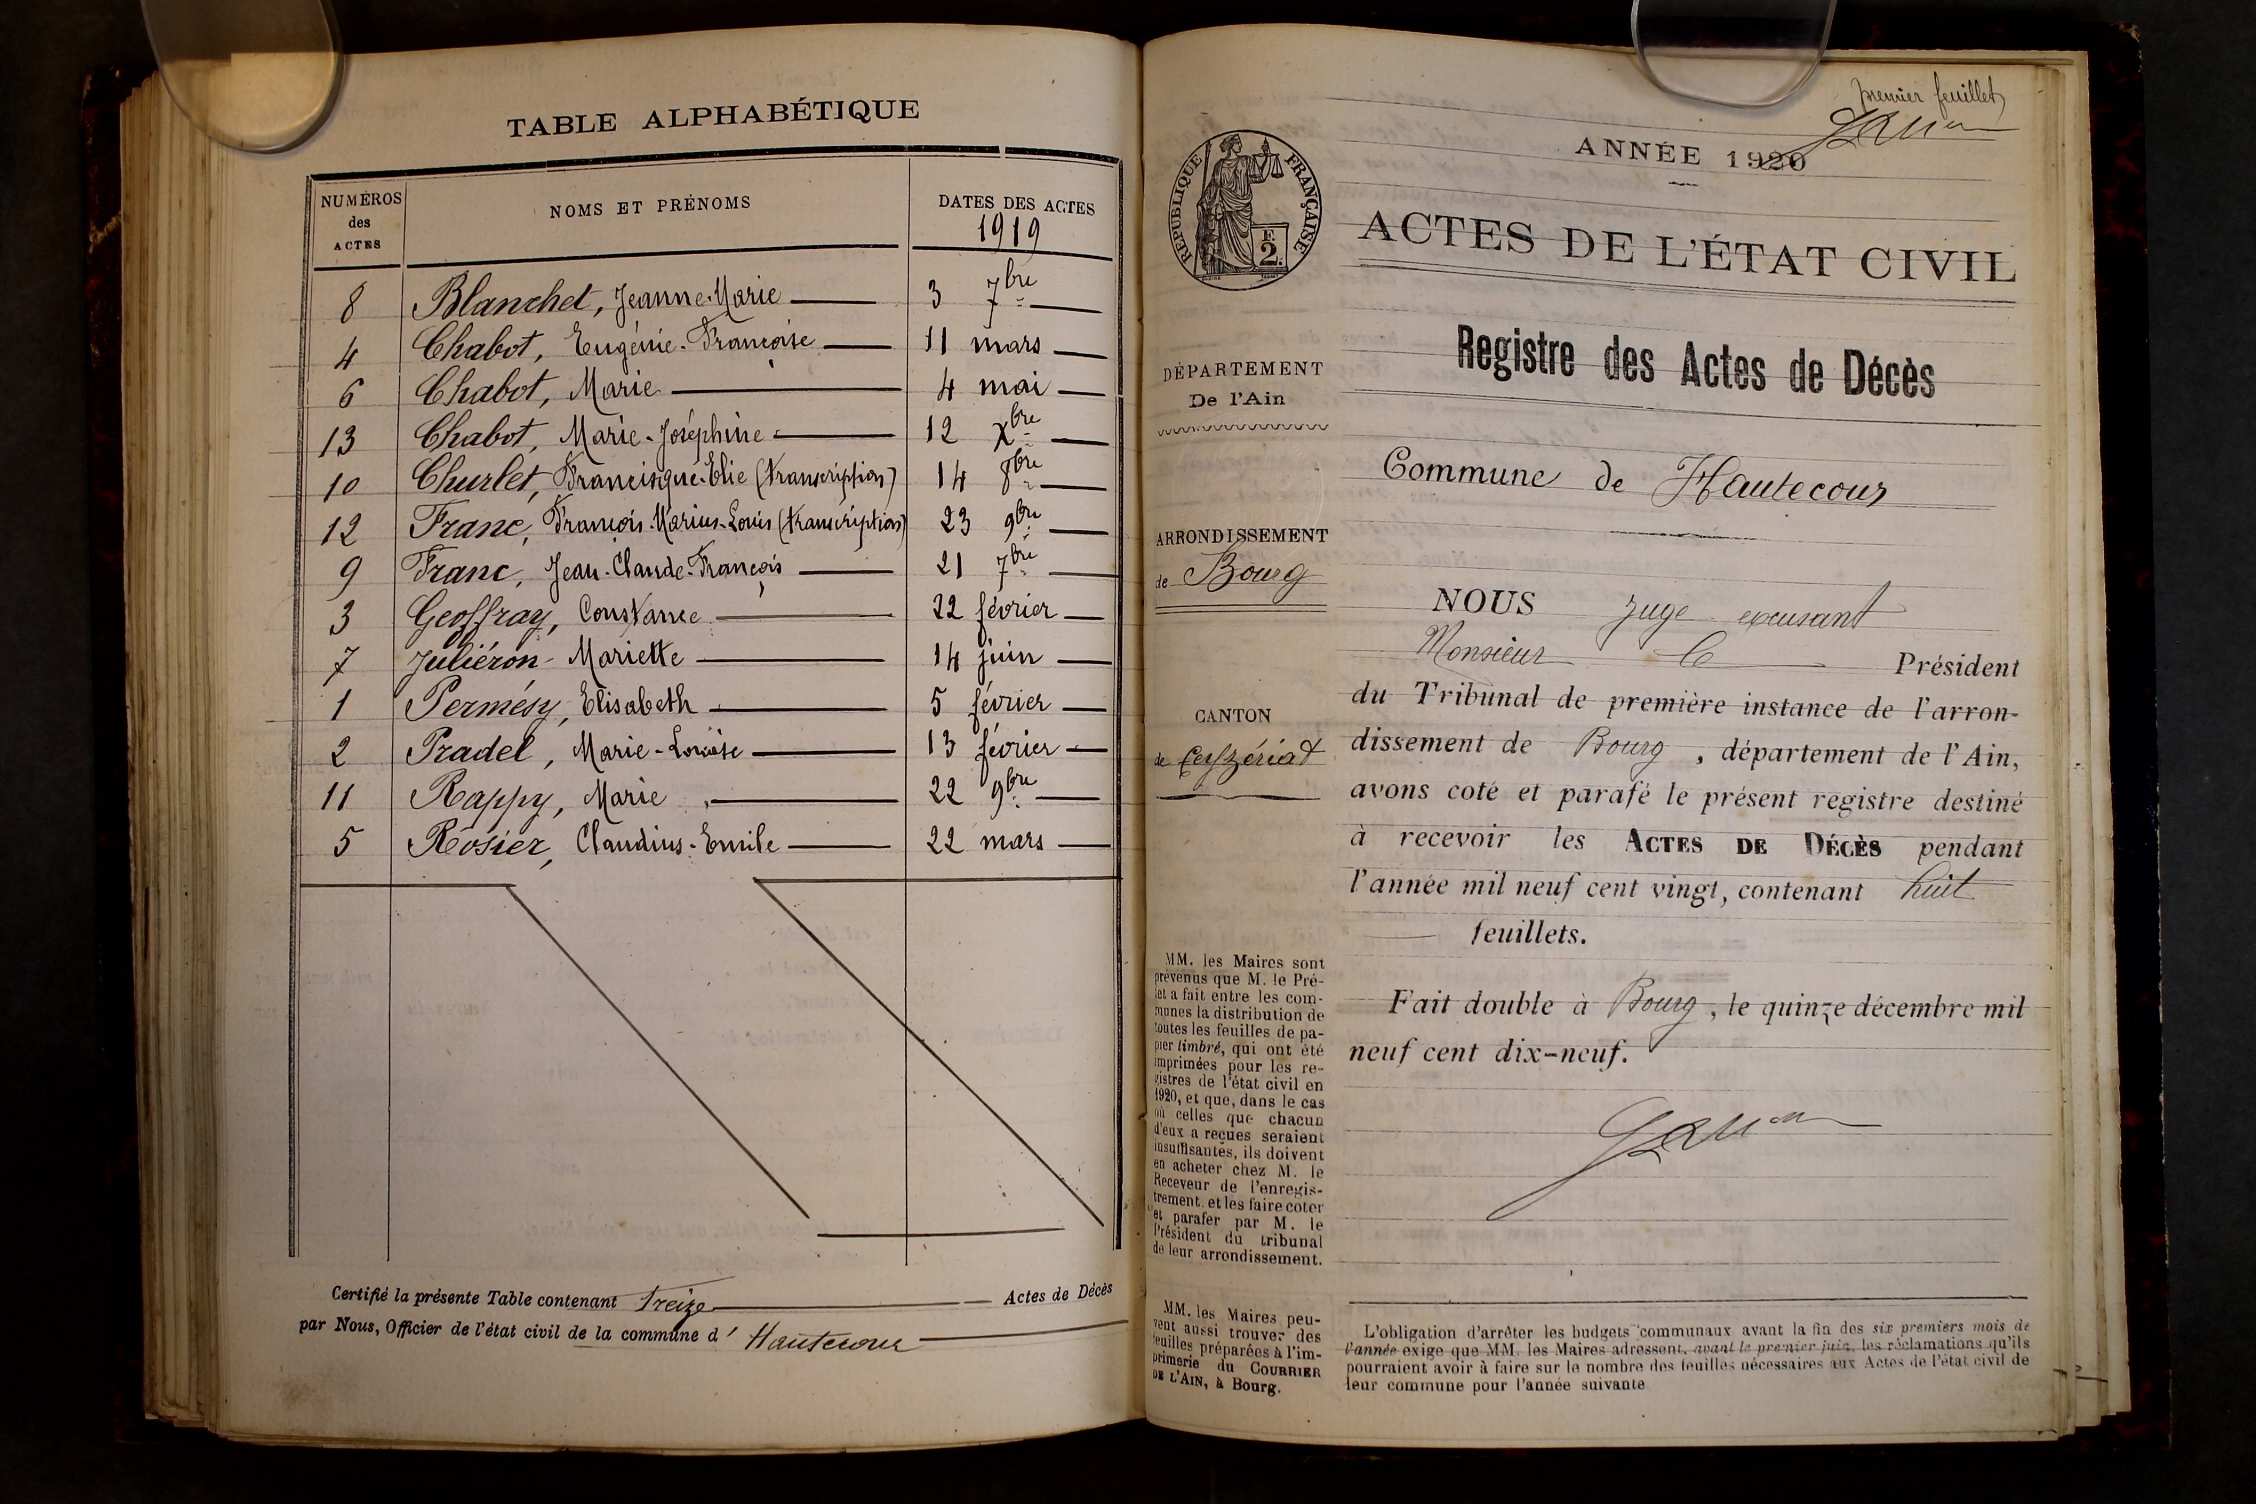 TABLE ALPHABÉTIQUE
NUMÉROS
des
ACTES
NOMS ET PRÉNOMS
DATES DES ACTES
1919
8 Blanchet, Jeanne-Marie 3 7bre
4 Chabot, Eugénie-Françoise 11 mars
6 Chabot, Marie 4 mai
13 Chabot, Marie-Joséphine 12 Xbre
10 Churlet, Francisque-Elie (transcription) 14 8bre
12 Franc, François-Marius-Louis (transcription) 23 9bre
9 Franc, Jean-Claude-François 21 7bre
3 Geoffray, Constance 22 février
7 Juliéron Mariette 14 juin
1 Permésy, Elisabeth 5 février
2 Pradel, Marie-Louise 13 février
11 Rappy, Marie 22 9bre
5 Rosier, Claudius-Emile 22 mars
Certifié la présente Table contenant Treize Actes de Décès
par Nous, Officier de l'état civil de la commune d' Hautecour
premier feuillet
ANNÉE 1920
RÉPUBLIQUE FRANÇAISE
F.
2.
ACTES DE L'ÉTAT CIVIL
Registre des Actes de Décès
DÉPARTEMENT
De l'Ain
Commune de Hautecour
ARRONDISSEMENT
de Bourg
CANTON
de Ceyzériat
NOUS Juge excusant
Monsieur le Président
du Tribunal de première instance de l'arron-
dissement de Bourg, département de l'Ain,
avons coté et parafé le présent registre destiné
à recevoir les ACTES DE DÉCÈS pendant
l'année mil neuf cent vingt, contenant huit
feuillets.
Fait double à Bourg, le quinze décembre mil
neuf cent dix-neuf.
MM. les Maires sont
prévenus que M. le Pré-
fet a fait entre les com-
munes la distribution de
toutes les feuilles de pa-
pier timbré, qui ont été
imprimées pour les re-
gistres de l'état civil en
1920, et que, dans le cas
où celles que chacun
d'eux a reçues seraient
insuffisantes, ils doivent
en acheter chez M. le
Receveur de l'enregis-
trement et les faire coter
et parafer par M. le
Président du tribunal
de leur arrondissement.
MM. les Maires peu-
vent aussi trouver des
feuilles préparées à l'im-
primerie du COURRIER
DE L'AIN, à Bourg.
L'obligation d'arrêter les budgets communaux avant la fin des six premiers mois de
l'année exige que MM. les Maires adressent, avant le premier juin, les réclamations qu'ils
pourraient avoir à faire sur le nombre des feuilles nécessaires aux Actes de l'état civil de
leur commune pour l'année suivante